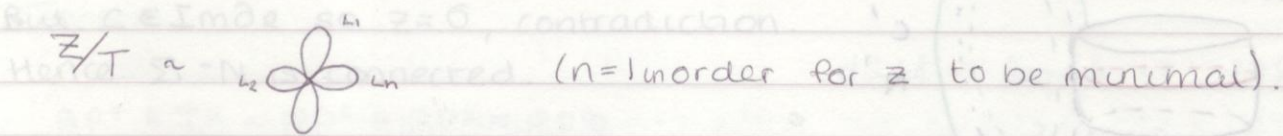 L1
Z/T ~ L2 Ln (n=1 in order for Z to be minimal).